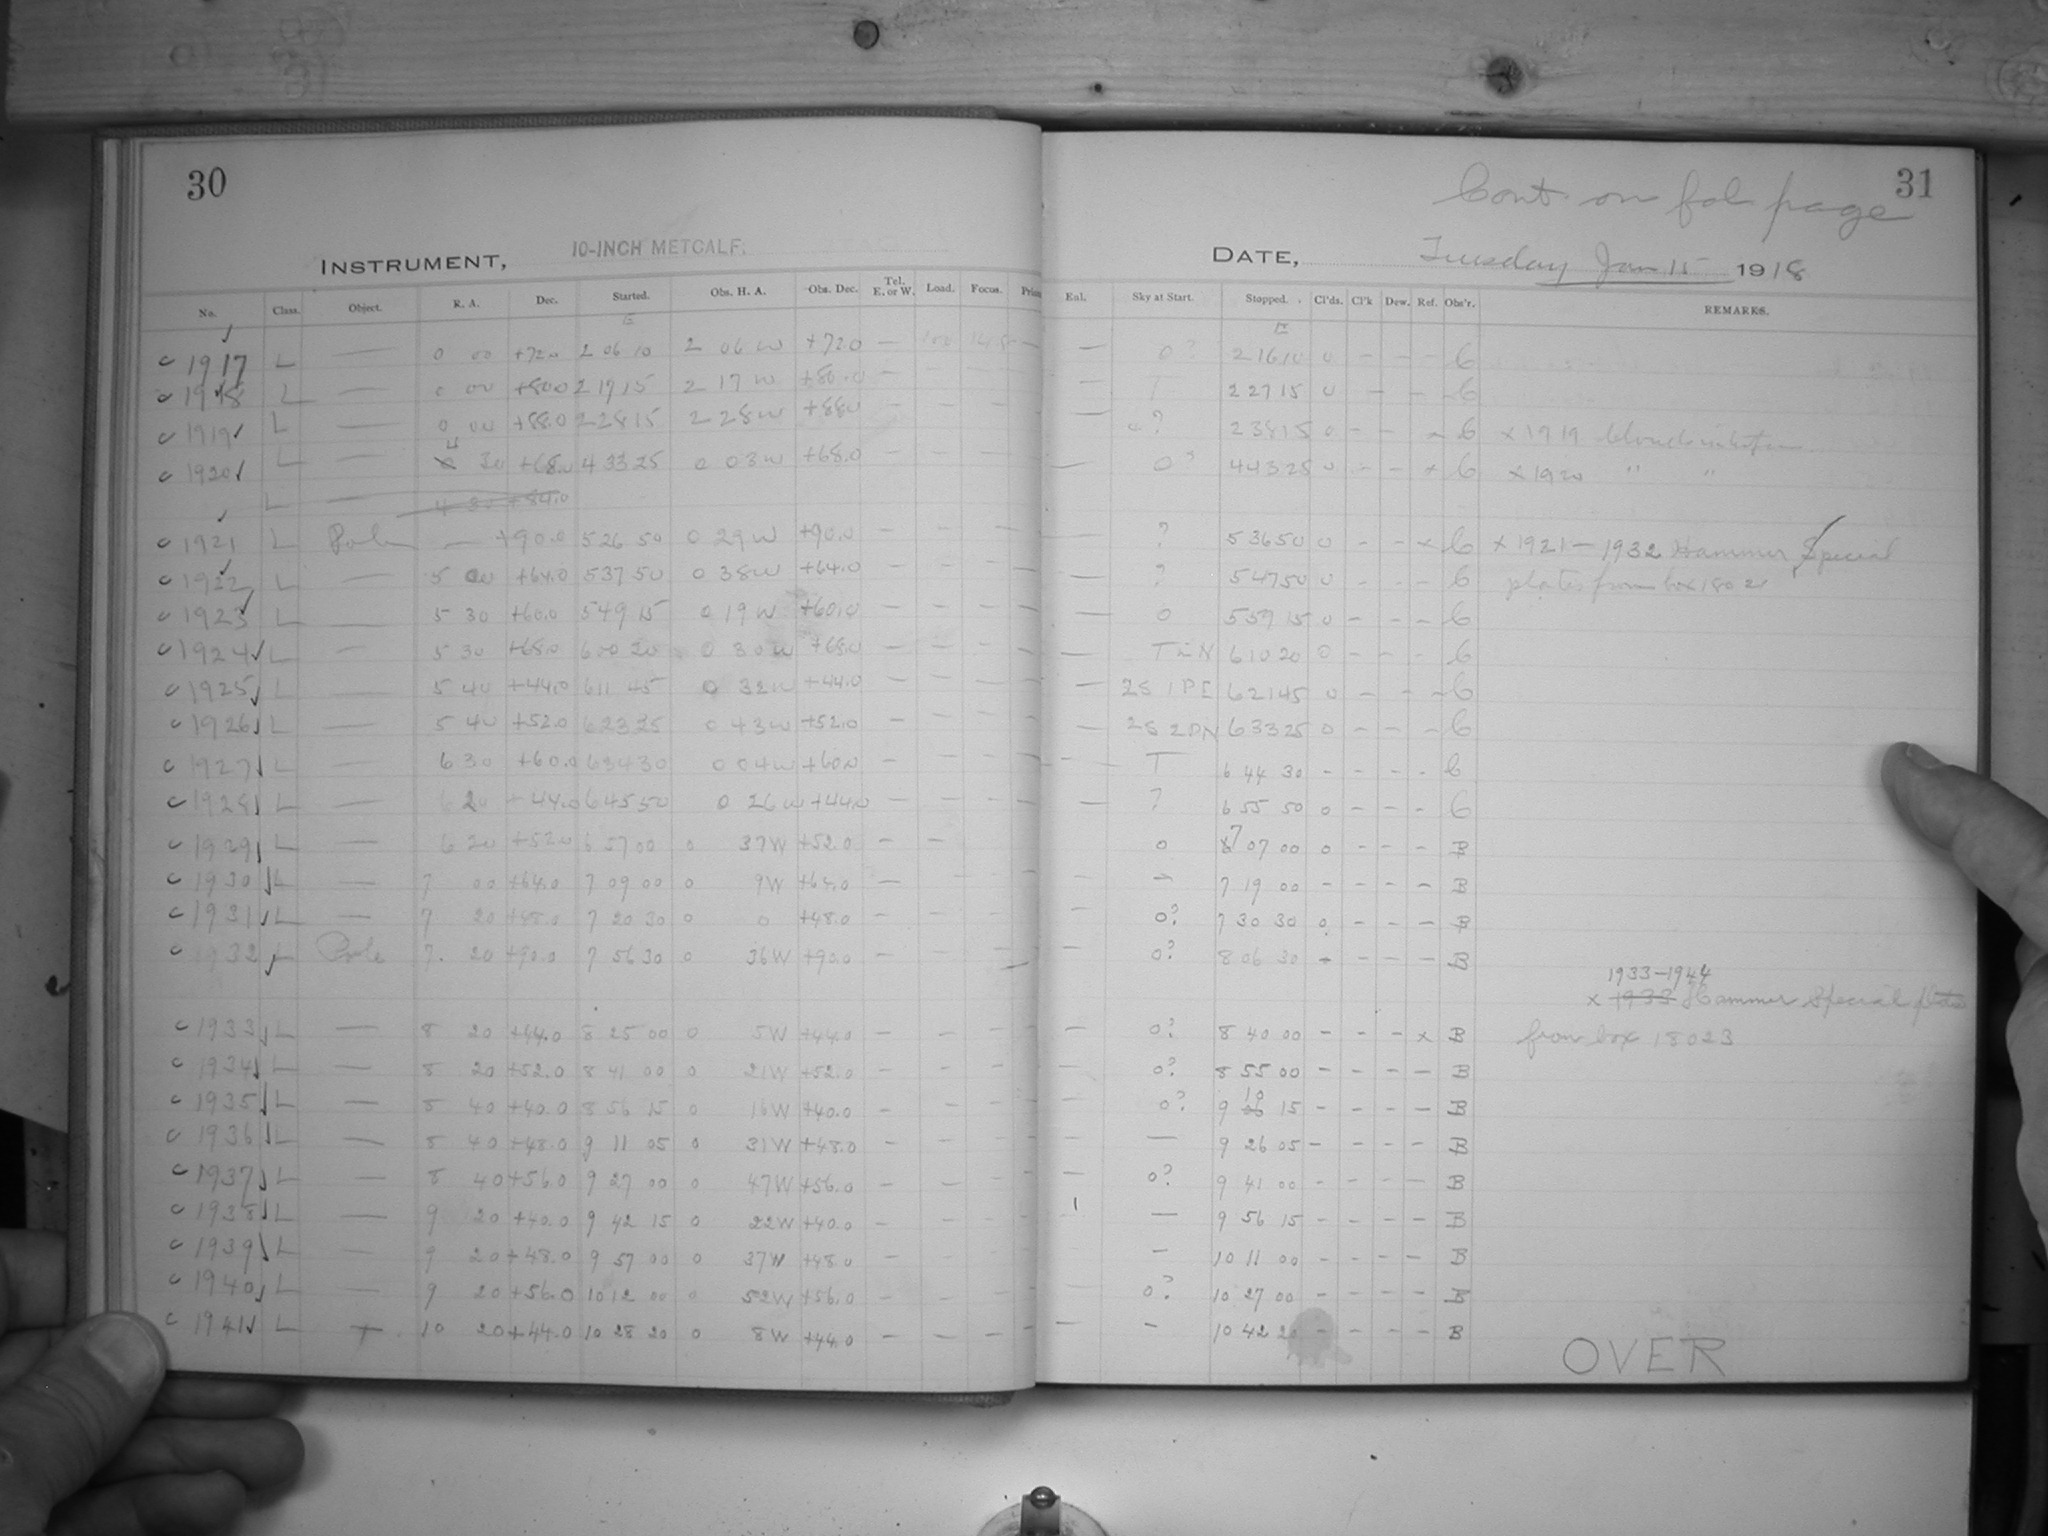 30
INSTRUMENT, 10-INCH METCALF.
No. Class. Object. R. A. Dec. Started. Obs. H. A. Obs. Dec. Tel. E. or W. Load. Focus.
c 1917 L — 0 00 +72.0 2 06 10 2 06 W +72.0 —
c 1918 L — 0 00 +80.0 2 17 15 2 17 W +80.0 — — —
c 1919 L — 0 00 +88.0 2 28 15 2 28 W +88.0 — — —
c 1920 L — 4 30 +68.0 4 33 25 0 03 W +68.0 — — —
L — 4 30 +84.0
c 1921 L Pole — +90.0 5 26 50 0 29 W +90.0 — — —
c 1922 L — 5 00 +64.0 5 37 50 0 38 W +64.0 — — —
c 1923 L — 5 30 +60.0 5 49 15 0 19 W +60.0 — — —
c 1924 L — 5 30 +68.0 6 00 20 0 30 W +68.0 — — —
c 1925 L — 5 40 +44.0 6 11 45 0 32 W +44.0 — — —
c 1926 L — 5 40 +52.0 6 23 25 0 43 W +52.0 — — —
c 1927 L — 6 30 +60.0 6 34 30 0 04 W +60.0 — — —
c 1928 L — 6 20 +44.0 6 45 50 0 26 W +44.0 — — —
c 1929 L — 6 20 +52.0 6 57 00 0 37 W +52.0 — —
c 1930 L — 7 00 +64.0 7 09 00 0 9 W +64.0 —
c 1931 L — 7 20 +48.0 7 20 30 0 0 +48.0 — — —
c 1932 L Pole 7 20 +90.0 7 56 30 0 36 W +90.0 — — —
c 1933 L — 8 20 +44.0 8 25 00 0 5 W +44.0 — — —
c 1934 L — 8 20 +52.0 8 41 00 0 21 W +52.0 — — —
c 1935 L — 8 40 +40.0 8 56 15 0 16 W +40.0 — — —
c 1936 L — 8 40 +48.0 9 11 05 0 31 W +48.0 — — —
c 1937 L — 8 40 +56.0 9 27 00 0 47 W +56.0 — — —
c 1938 L — 9 20 +40.0 9 42 15 0 22 W +40.0 — — —
c 1939 L — 9 20 +48.0 9 57 00 0 37 W +48.0 — — —
c 1940 L — 9 20 +56.0 10 12 00 0 52 W +56.0 — — —
c 1941 L — 10 20 +44.0 10 28 20 0 8 W +44.0 — — —
31
Cont. on fol page
DATE, Tuesday Jan 15 1918
Sky at Start. Stopped. Cl'ds. Cl'k Dew. Ref. Obs'r. REMARKS.
— 0? 2 16 10 0 — — — C
T 2 27 15 0 — — C
— 0? 2 38 15 0 — — x C x 1919
— 0? 4 43 25 0 — — x C x 1920 " "
— ? 5 36 50 0 — — x C x 1921 — 1932 Hammer Special
— ? 5 47 50 0 — — C plates from box 18021
— 0 5 59 15 0 — — — C
— T in N 6 10 20 0 — — — C
— 2S 1PE 6 21 45 0 — — — C
— 2S 2PN 6 33 25 0 — — — C
— T 6 44 30 — — — — C
— ? 6 55 50 0 — — — C
0 7 07 00 0 — — — B
— — 7 19 00 — — — — B
— 0? 7 30 30 0 — — — B
— 0? 8 06 30 — — — — B
1933–1944
x 1933 Hammer Special plates
— 0? 8 40 00 — — — x B from box 18023
— 0? 8 55 00 — — — — B
0? 9 10 15 — — — — B
— — 9 26 05 — — — — B
— 0? 9 41 00 — — — — B
— 9 56 15 — — — — B
— 10 11 00 — — — — B
— 0? 10 27 00 — — — — B
— — 10 42 20 — — — — B
OVER